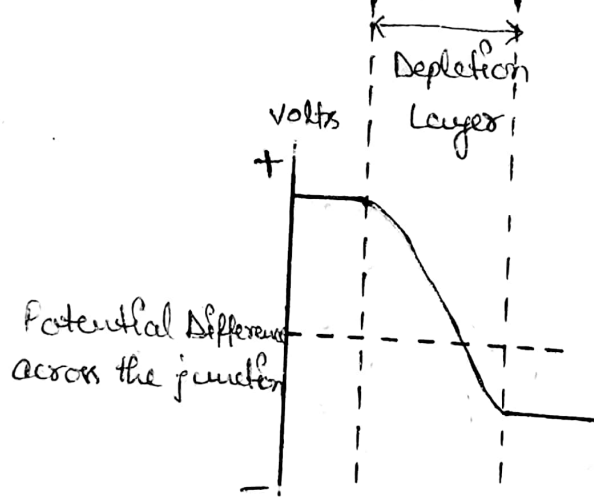 Depletion
Layer
Volts
+
Potential Difference
across the junction
-